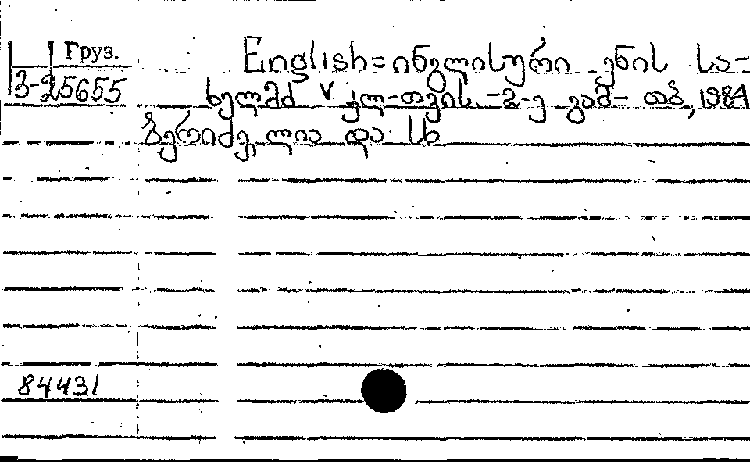 Груз.
English=ინგლისური ენის სა-
3-25655
ხელმძ V კლ-თვის.-2-ე გამ- თბ, 1984
ბერიძე, ლია და სხ
84431